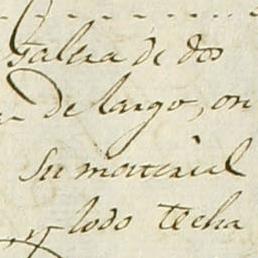 Galera de dos
de largo, on
su material
y lodo techa